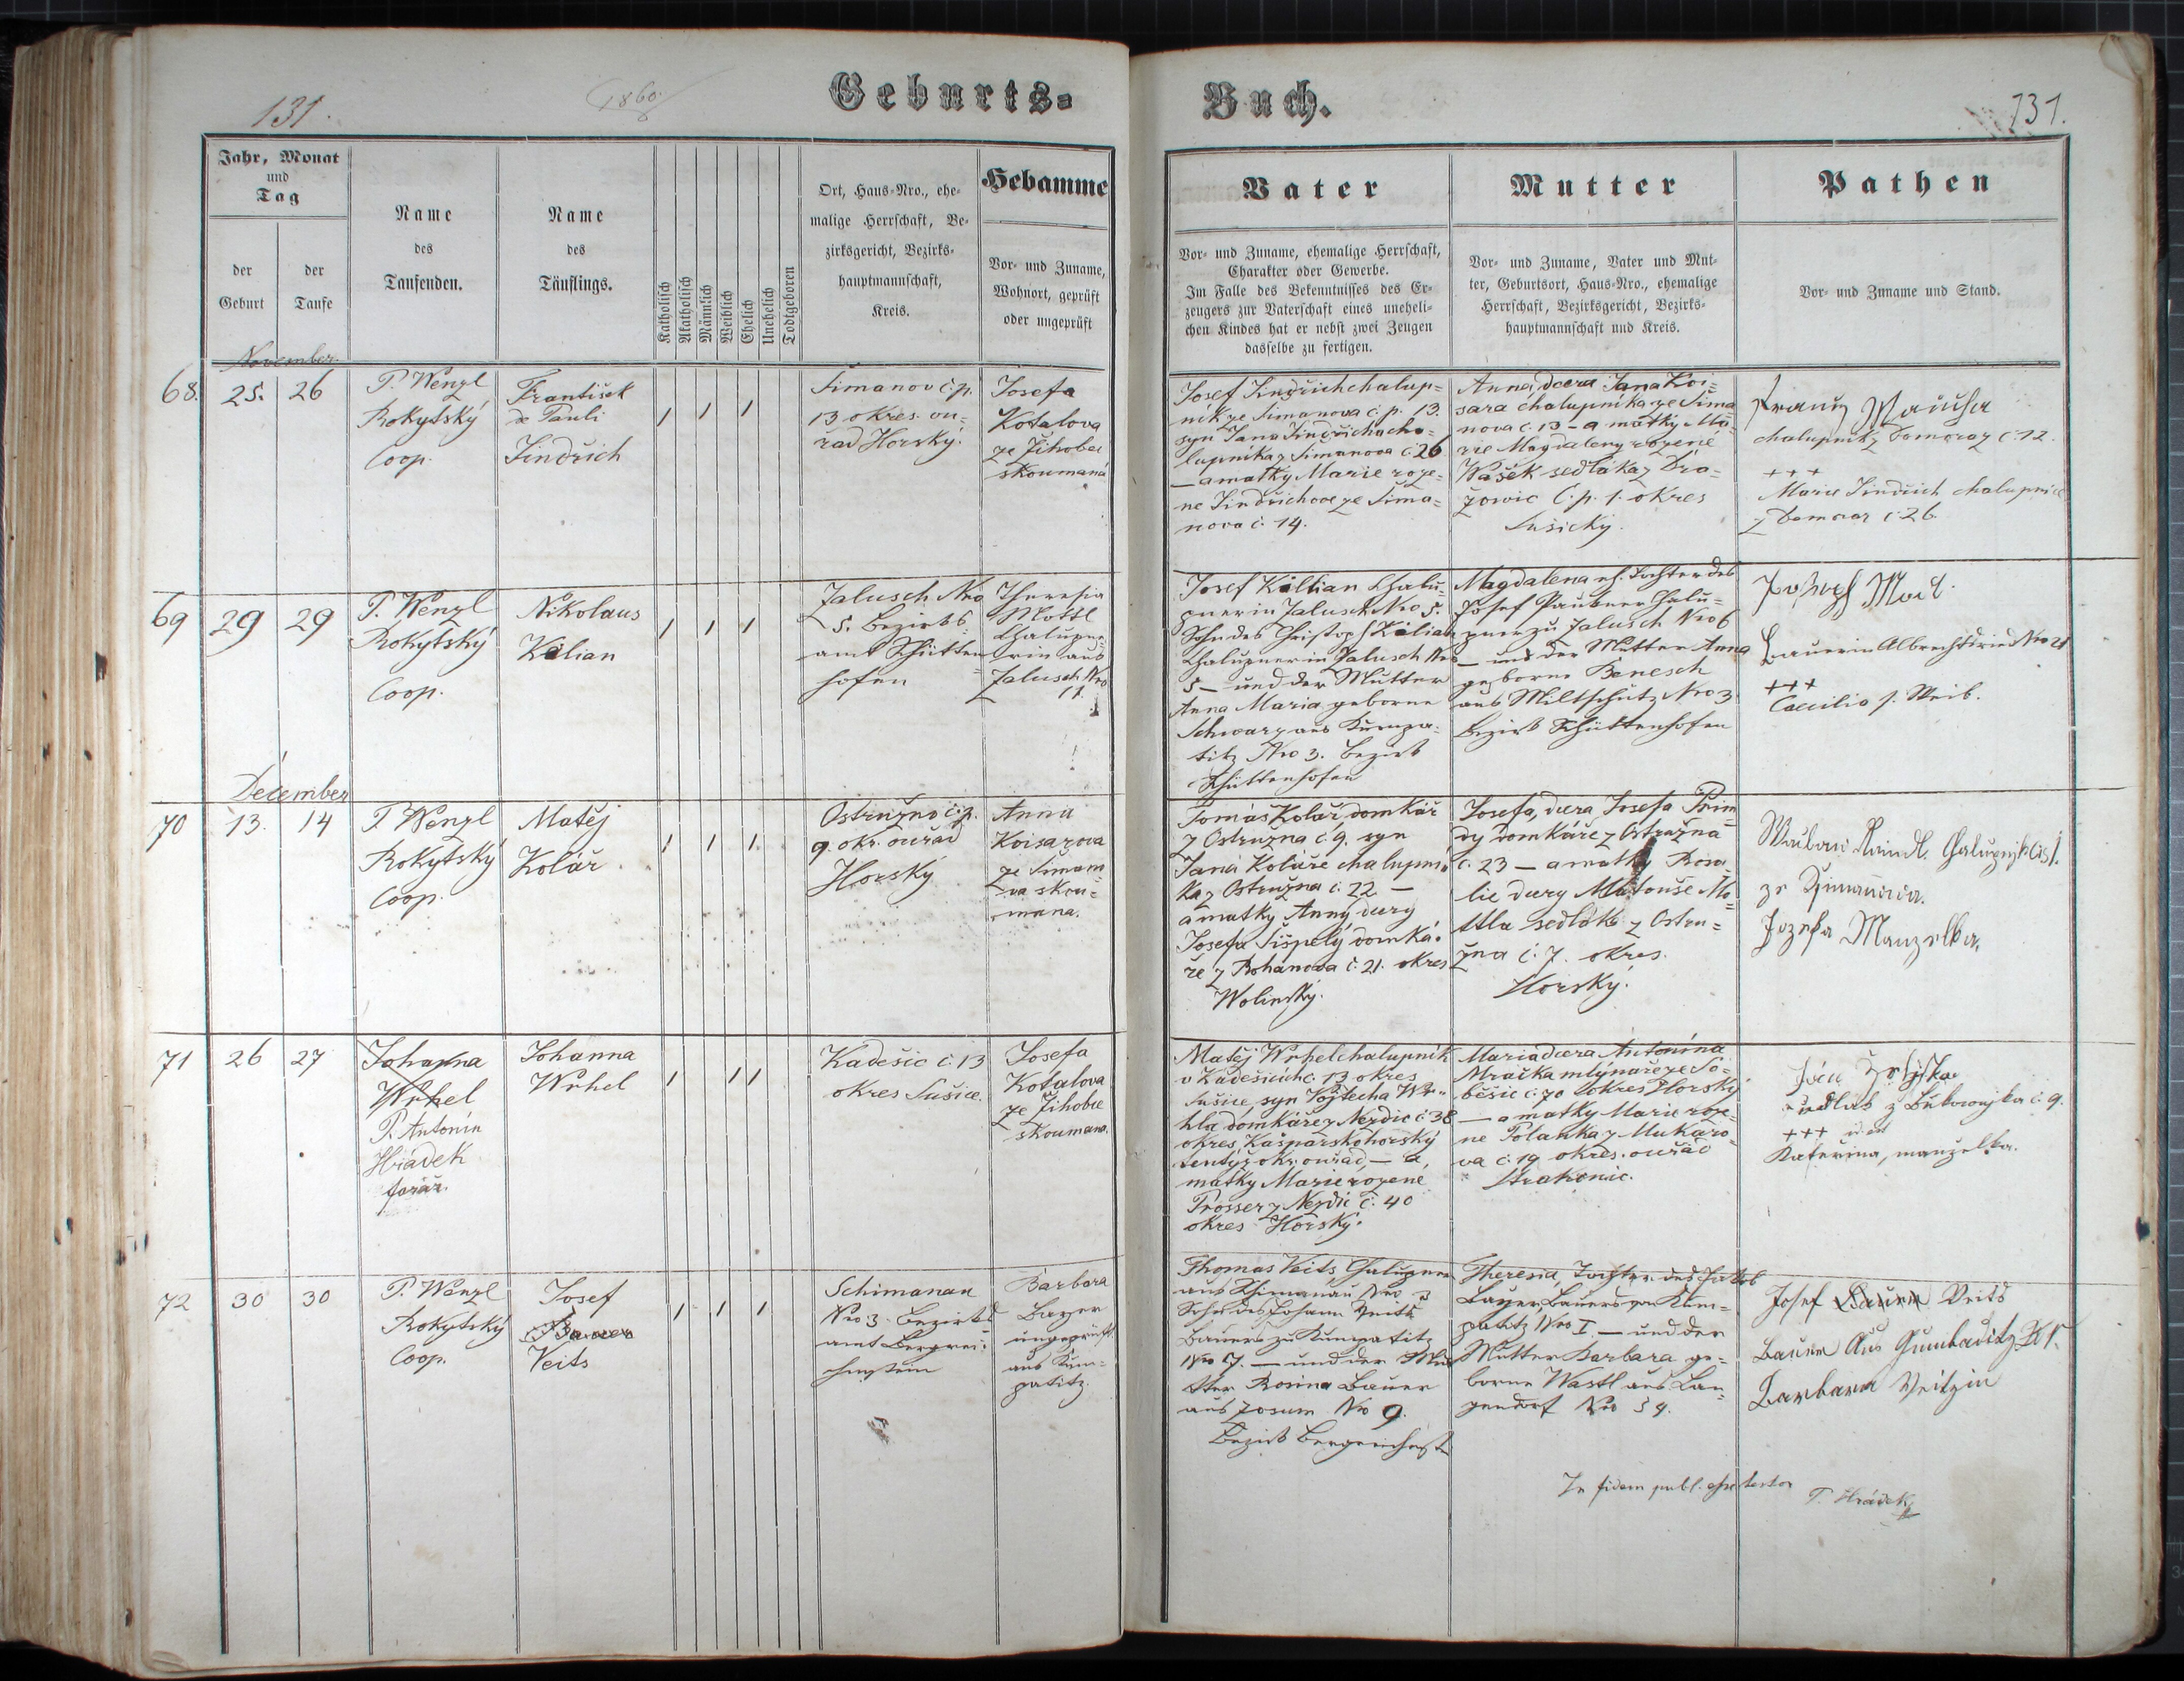 131.
1860.
Geburts=
Buch.
131.
Jahr, Monat
und
Tag
der
Geburt
der
Taufe
Name
des
Taufenden.
Name
des
Täuflings.
Katholisch
Akatholisch
Männlich
Weiblich
Ehelich
Unehelich
Todtgeboren
Ort, Haus=Nro., ehe=
malige Herrschaft, Be=
zirksgericht, Bezirks=
hauptmannschaft,
Kreis.
Hebamme
Vor= und Zuname,
Wohnort, geprüft
oder ungeprüft
Vater
Vor= und Zuname, ehemalige Herrschaft,
Charakter oder Gewerbe.
Im Falle des Bekenntnisses des Er=
zeugers zur Vaterschaft eines uneheli=
chen Kindes hat er nebst zwei Zeugen
dasselbe zu fertigen.
Mutter
Vor= und Zuname, Vater und Mut=
ter, Geburtsort, Haus=Nro., ehemalige
Herrschaft, Bezirksgericht, Bezirks=
hauptmannschaft und Kreis.
Pathen
Vor= und Zuname und Stand.
November.
68.
25.
26
P. Wenzl
Rokytský
Coop.
František
de Pauli
Jindřich
Šimanov č.p.
13 okres. ou=
řad Horský.
Josefa
Kotalova
ze Žihobec
skoumaná
Josef Jindřich chalup=
ník ze Šimanova č.p. 13.
syn Jana Jindřicha cha=
lupníka z Šimanova č. 26
— a matky Marie roze=
né Jindřichove ze Šima=
nova č. 14.
Anna, dcera Jana Koi=
sara chalupníka ze Šima
nova č. 13 — a matky Ma=
rie Magdaleny rozené
Wašek sedláka z Dra=
žowic č.p. 1. okres
Sušický.
Franz
chalupník z Domoraz č. 12.
+++
Marie Jindřich chalupnice
z Domoraz č. 26.
69
29
29
P. Wenzl
Rokytský
Coop.
Nikolaus
Kilian
Jalusch Nro
5. Bezirks=
amt Schütten
hofen
Theresia
Mottl
Chalupne=
rin aus
Jalusch Nro
11.
Josef Killian Chalu=
pner in Jalusch Nro 5.
Sohn des Christoph Kilian
Chalupner in Jalusch Nro
5 — und der Mutter
Anna Maria geborne
Schwarz aus Kumpa=
titz Nro 3. Bezirk
Schüttenhofen
Magdalena eh. Tochter des
Josef Paubner Chalu=
pner zu Jalusch Nro 6
— und der Mutter Anna
geborne Benesch
aus Miltschütz Nro 3
Bezirk Schüttenhofen
Joseph
Bauer in Albrechtsried Nro 21
+++
Caecilia s. Weib.
December
70
13.
14
P. Wenzl
Rokytský
Coop.
Matěj
Kolář.
Ostružno č.p.
9. okr. ouřad
Horský
Anna
Koisarova
ze Šimano
va skou=
mana.
Tomáš Kolář, domkář
z Ostružna č. 9. syn
Jana Koláře chalupní
ka z Ostružna č. 22 —
a matky Anny, dcery
Josefa Šišpely domká=
ře z Bohanova č. 21. okres
Wolinský.
Josefa, dcera Josefa Prin
dy domkáře z Ostružna
č. 23 — a matky Rosa
lie dcery Matouše Mo=
ttla sedláka z Ostru=
žna č. 7. okres.
Horský.
ze Šimanova.
Jozefa Manzelka.
71
26
27
Johanna
Wrhel
P. Antonín
Hrádek
farář.
Johanna
Wrhel
Kadešic č. 13
okres Sušice.
Josefa
Kotalova
ze Žihobce
skoumana.
Matěj Wrhel chalupník
v Kadešicích č. 13 okres
Sušice, syn Vojtěcha Wr=
hla domkáře z Nezdic č. 38
okres Kašparskohorský
tentýž okr. ouřad — a
matky Marie rozené
Prosser z Nezdic č. 40
okres Horský.
Maria dcera Antonína
Mračka mlynáře ze So=
běšic č. 70 okres Horský
— a matky Marie roze=
né Polanka z Mukaro=
va č. 19 okres. ouřad
Strakonic.
Jan
sedlák z Bukovníka č. 9.
+++
Kateřina, manzelka.
72
30
30
P. Wenzl
Rokytský
Coop.
Josef
Bauer
Veits
Schimanau
Nro 3. Bezirks
amt Bergrei=
chenstein
Barbara
Bayer
ungeprüft
aus Kum=
patitz.
Thomas Veits, Chalupner
aus Schimanau Nro 3
Sohn des Johann Veits
Bauers zu Kumpatitz
Nro 7. — und der Mu
tter Rosina Bauer
aus Zosum Nro 9.
Bezirk Bergreichenst.
Theresia, Tochter des Jakob
Bayer, Bauers von Kum=
patitz Nro I. — und der
Mutter Barbara ge=
borne Wastl aus Lan=
gendorf Nro 59.
Josef Bauer Veits
Bauer aus Gumbaditz
Barbara Veitzin
In fidem publ.
P. Hrádek